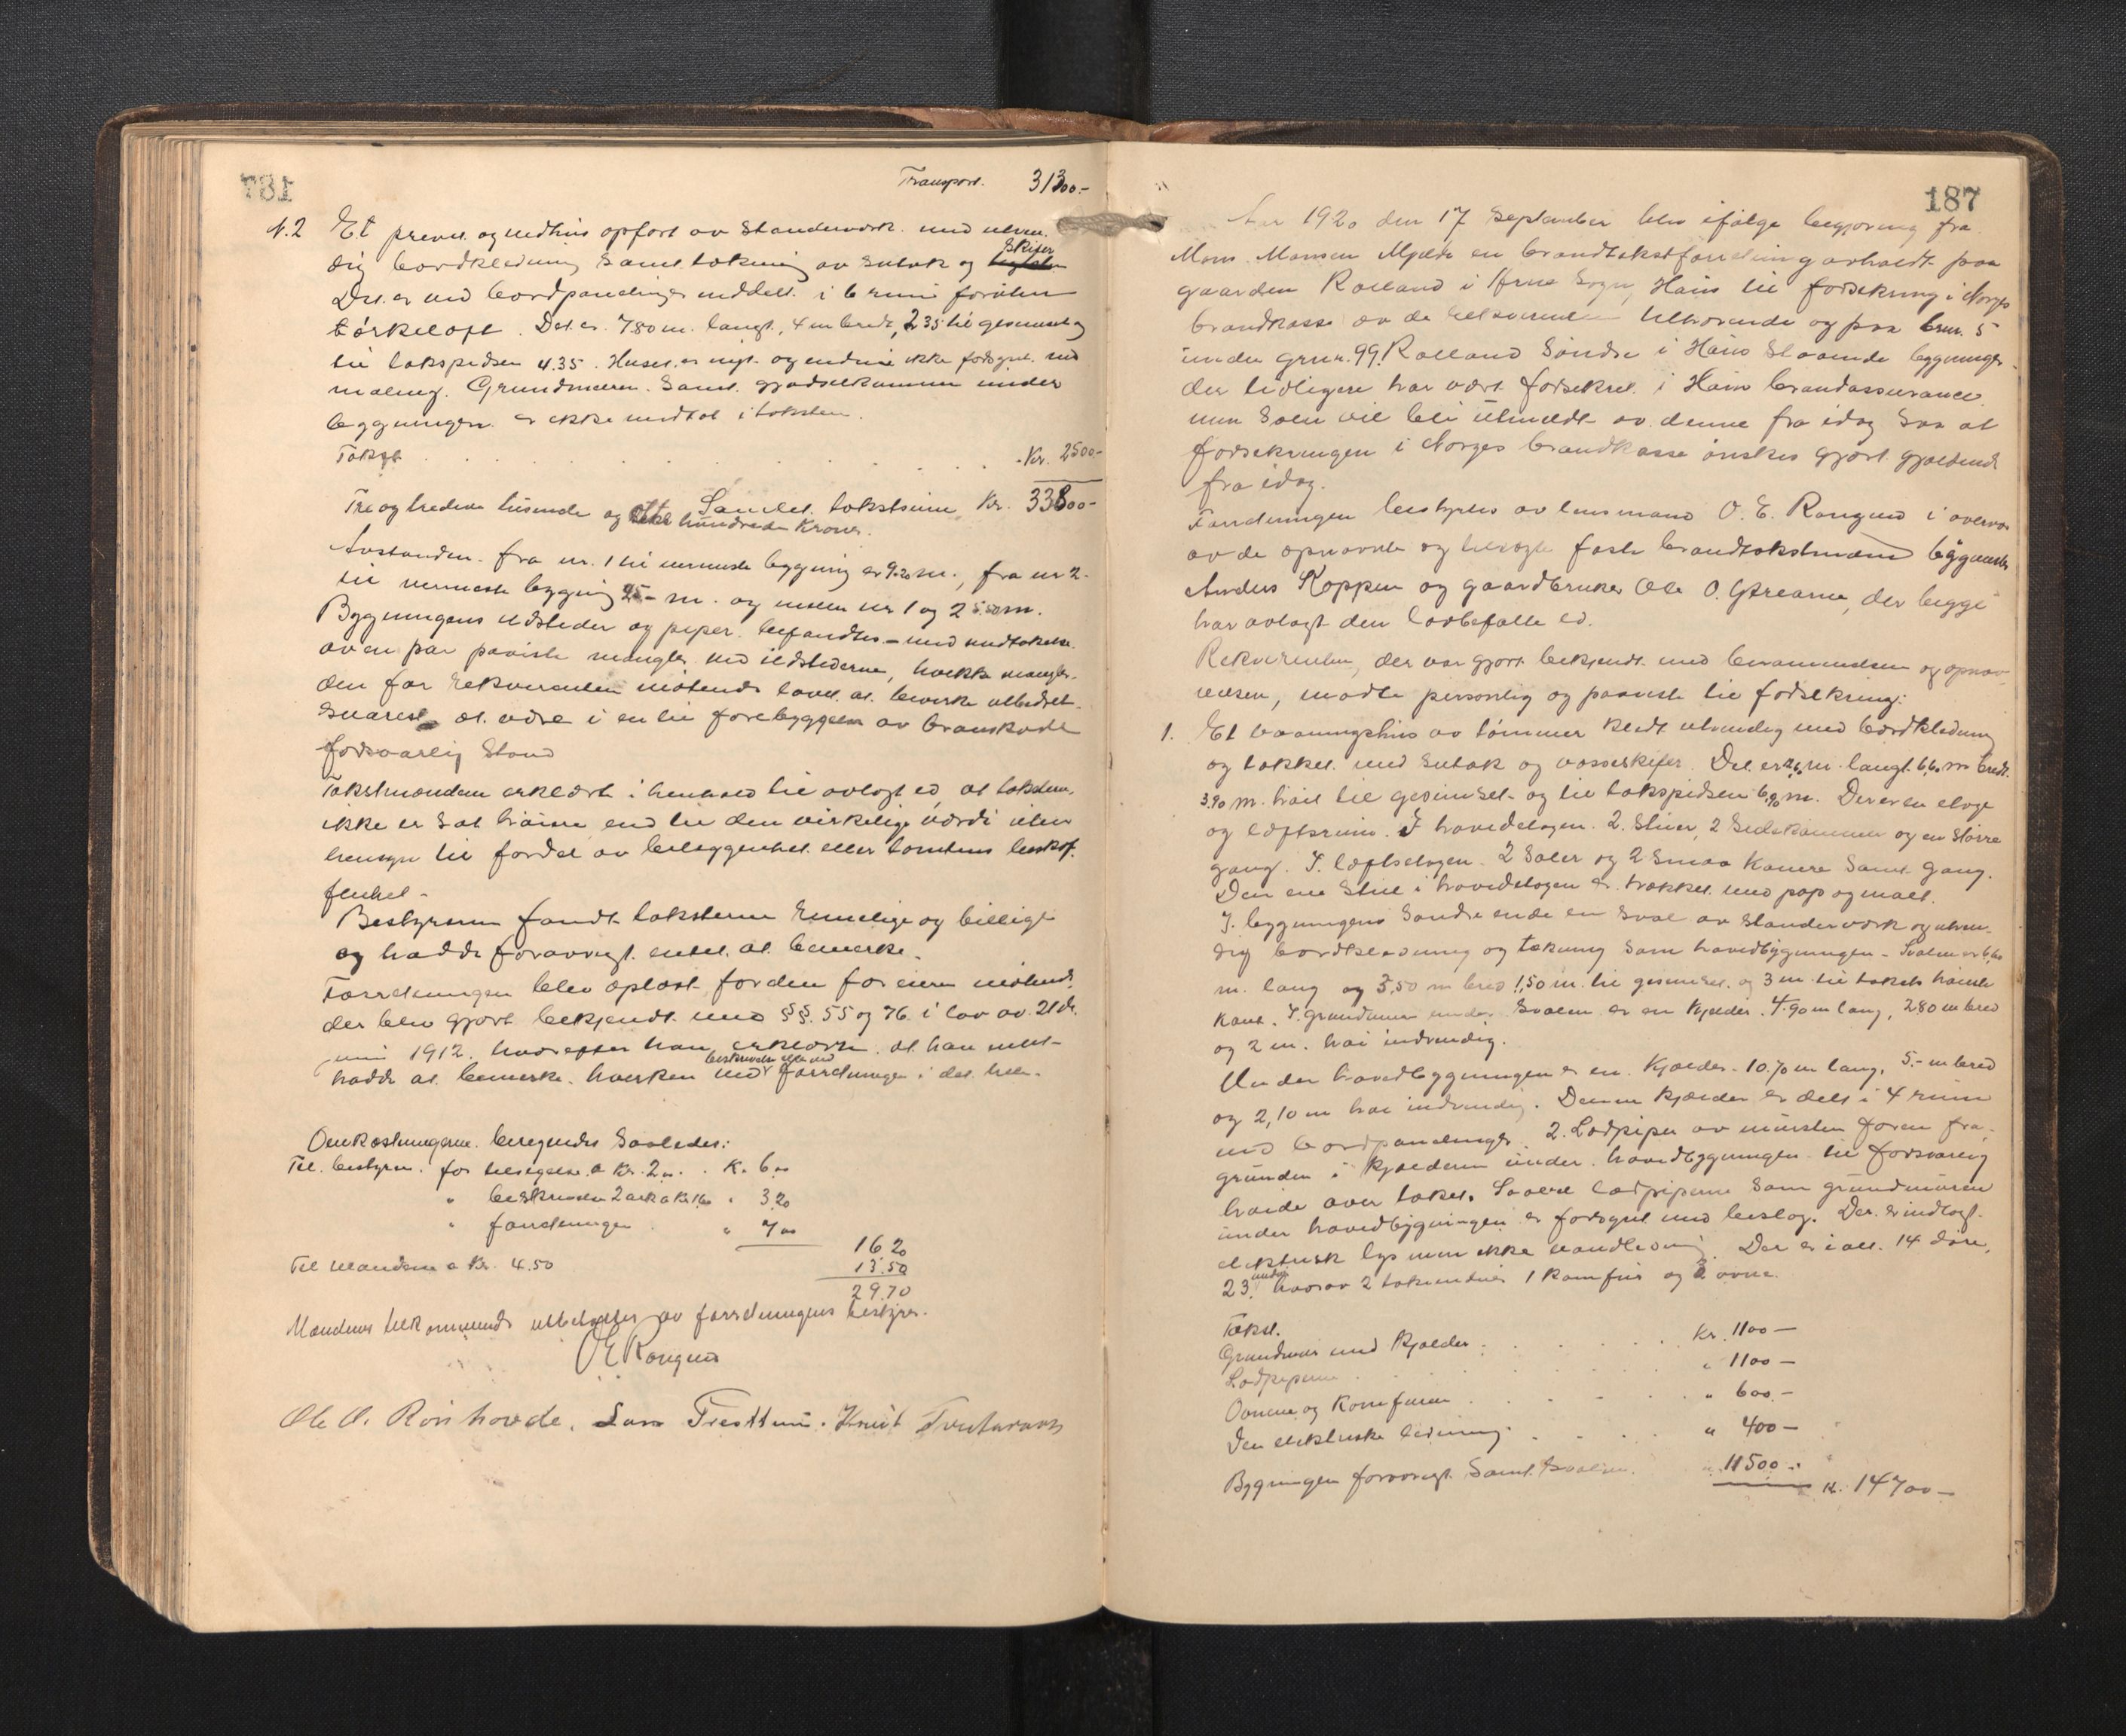 Transport. 31300.-
N.2 Et privet og vedhus opført av standerværk med utven-
dig bordklædning samt tækning av sutak og skifer
Det er ved bordpanelinger inddelt i 6 rum foruten
tørkeloft. Det er 7.80 m. langt, 4 m bredt, 2.35 til gesimset og
til takspidsen 4.35. Huset er nyt og endnu ikke forsynt med
maling. Grundmuren samt gjødselkummen under
bygningen er ikke medtat i taksten.
Takst . . . . . . . Kr. 2500.-
Samlet takstsum Kr. 33800-
Tre og tredive tusende og otte hundrede Kroner.
Avstanden fra nr. 1 til nærmeste bygning er 9.20 m., fra nr 2
til nærmeste bygning 25- m. og mellem nr 1 og 2 5.50 m.
Bygningens ildsteder og piper befandtes - med undtakelse
av en par paaviste mangler ved ildstederne, hvilke mangler
den for rekvirenten møtende lovet at bevirke utbedret
snarest at være i en til forebyggelse av brandskade
forsvarlig stand
Takstmændene erklærte i henhold til avlagt ed, at taksten
ikke er sat høiere end til den virkelige værdi uten
hensyn til fordel av beliggenhet eller tomtens beskaf-
fenhet -
Bestyreren fandt taksterne rimelige og billige
og hadde forøvrigt intet at bemerke.
Forretningen blev oplæst for den for eieren møtende,
der blev gjort bekjendt med §§. 55 og 76 i lov av 21de
juni 1912. hvorefter han erklærte at han intet
hadde at bemerke hverken ved beskrivelse eller ved forretningen i det hele.
Omkostningerne beregnedes saaledes:
Til bestyrer. for tilsigelse a Kr. 2.00 . Kr. 6.00
" beskrivelse 2 ark a Kr 1.60 " 3.20
" forretningen " 7.00
16.20
Til Mændene a Kr. 4.50 13.50
29.70
Mændenes tilkommende utbetaltes av forretningens bestyrer.
O E Rongved
Ole O. Rønhovde. Lars Trættun. Knut
187
Aar 1920 den 17 September blev ifølge begjæring fra
Mons Monsen Mjelde en brandtakstforretning avholdt paa
gaarden Rolland i Arne Sogn, Haus til forsikring i Norges
brandkasse av de rekvirenten tilhørende og paa brnr. 5
under grnr. 99. Rolland Søndre i Haus staaende bygninger
der tidligere har vært forsikret i Haus brandassurance
men som vil bli utmeldt av denne fra idag saa at
forsikringen i Norges brandkasse ønskes gjort gjældende
fra idag.
Forretningen bestyres av lensmand O. E. Rongved i overvær
av de opnævnte og tilsagte faste brandtakstmænd byggmester
Anders Koppen og gaardbruker Ole O. Gaarene, der begge
har avlagt den lovbefalte ed.
Rekvirenten, der var gjort bekjendt med berammelsen og opnæv-
nelsen, møtte personlig og paaviste til forsikring:
1. Et vaaningshus av tømmer klædt utvendig med bordklædning
og tækket med sutak og vosseskifer. Det er m. langt 6,60 m bredt
3.90 m. høit til gesimset og til takspidsen 6,90 m. Der er en etage
og loftsrum. I hovedetagen 2 stuer, 2 sidekammer og en større
gang. I loftsetagen 2 saler og 2 smaa kamre samt gang.
Den ene stue i hovedetagen er trækket med pap og malt.
I bygningens søndre ende en sval av standerværk og utven-
dig bordklædning og tækning som hovedbygningen - Svalen er 6,60
m. lang og 3,50 m bred 1,50 m. til gesimset og 3 m til takets høieste
kant. I grundmuren under svalen er en kjælder 4.90 m lang, 2.80 m bred
og 2 m. høi indvendig.
Under hovedbygningen er en kjælder 10.70 m lang, 5.- m bred
og 2,10 m høi indvendig. Denne kjælder er delt i 4 rum
med bordpanelinger. 2 Lodpiper av mursten føren fra
grunden i kjælderen under hovedbygningen til forsvarlig
høide over taket. Saavel lodpiperne som grundmuren
under hovedbygningen er forsynt med beslag. Der er indlagt
elektrisk lys men ikke vandledning. Der er i alt 14 døre,
23 vinduer hvorav 2 takvinduer 1 komfur og 2 ovne.
Takst.
Grundmur med kjælder . . . . Kr. 1100 -
Lodpiperne . . . . " 1100 -
Ovnene og komfuren . . . " 600.-
Den elektriske ledning . . . " 400 -
Bygningen forøvrigt samt svalen. " 11500.- K. 14700 -